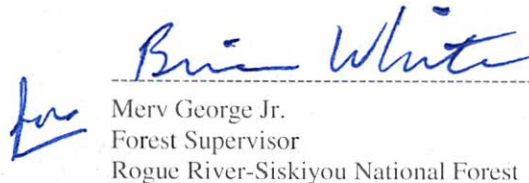 Brian White
for Merv George Jr.
Forest Supervisor
Rogue River-Siskiyou National Forest